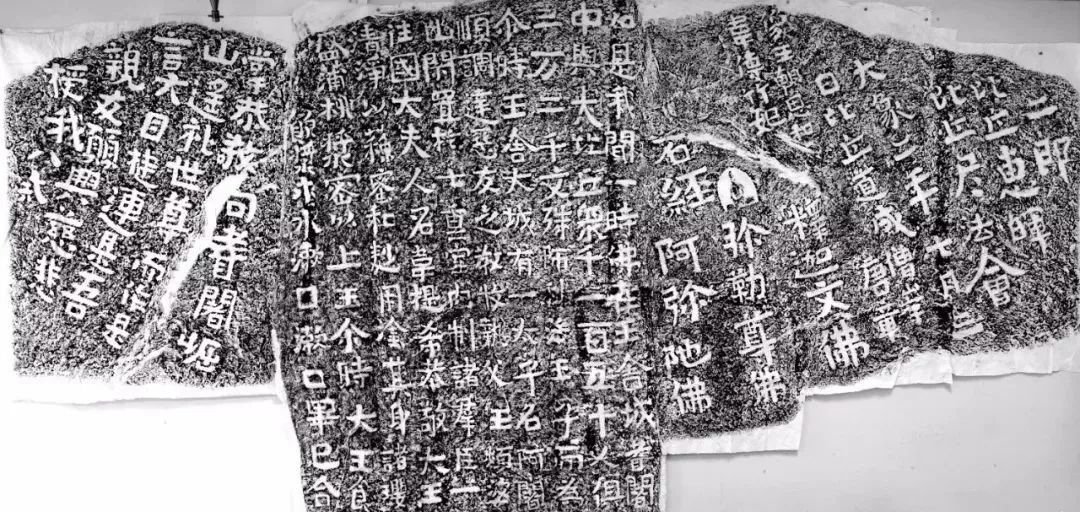 二即
比丘惠暉
比丘尼法會
大象二年七月三
日比丘道咸僧岸唐董
釋迦文佛
弥勒尊佛
阿弥陀佛
石經
如是我聞一時佛在王舍城耆闍
中與大比丘衆千二百五十人俱
三万二千文殊師利法王子而為
尒時王舍大城有一太子名阿闍
順調達惡友之教收執父王頻婆
幽閉置於七重室内制諸羣臣一
往國大夫人名韋提希恭敬大王
清淨以蘇蜜和麨用塗其身諸瓔
盛蒲桃漿密以上王尒時大王食
飲漿求水漱口漱口畢已合
掌恭敬向耆闍崛
山遙礼世尊而作是
言大目揵連是吾
親友願興慈悲
授我八戒